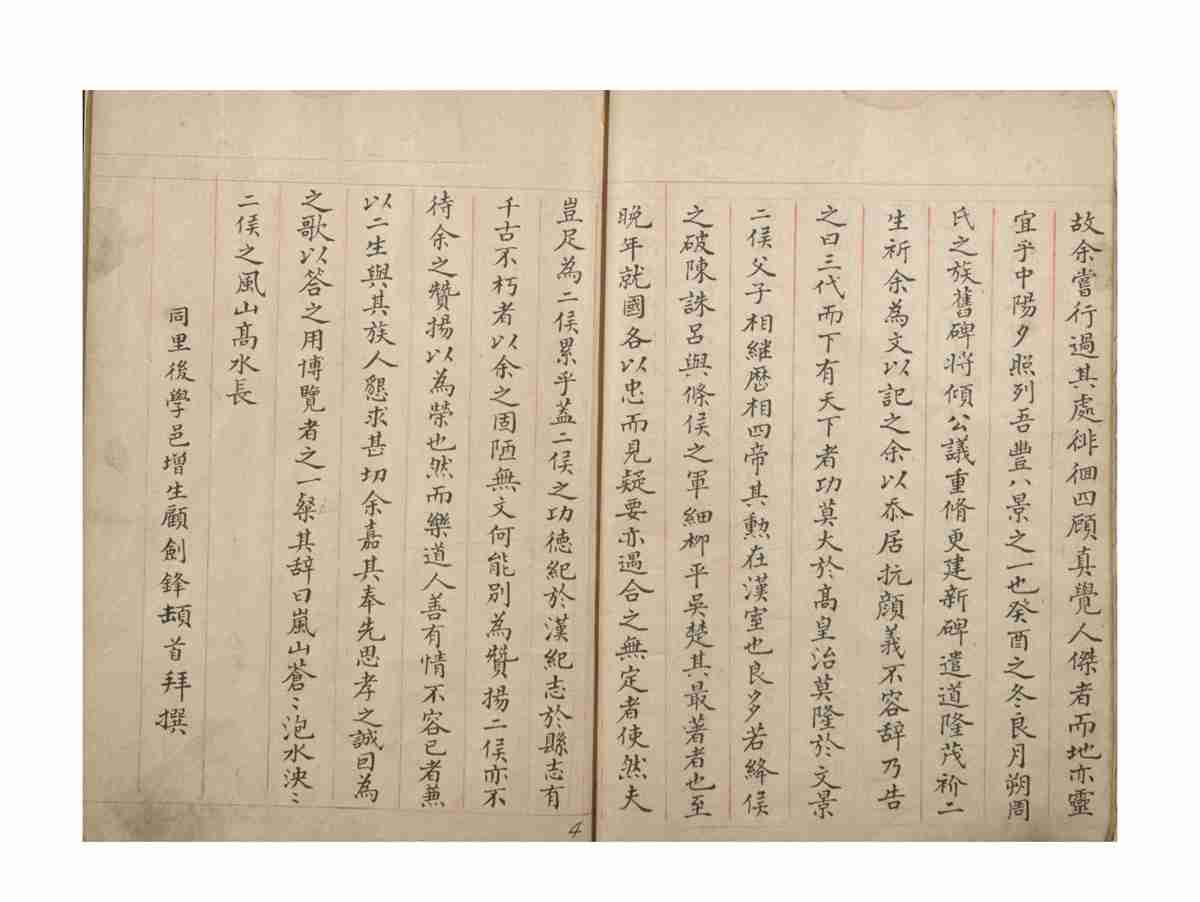 故余嘗行過其處徘徊四顧真覺人傑者而地亦靈
宜乎中陽夕照列吾豐八景之一也癸酉之冬良月朔周
氏之族舊碑將傾公議重脩更建新碑遣道隆茂祄二
生祈余為文以記之余以忝居抗顏義不容辞乃告
之曰三代而下有天下者功莫大於高皇治莫隆於文景
二侯父子相継歴相四帝其勲在漢室也良多若絳侯
之破陳誅呂與條侯之軍細柳平吳楚其最著者也至
晚年就國各以忠而見疑要亦遇合之無定者使然夫
豈足為二侯累乎蓋二侯之功徳紀於漢紀志於縣志有
千古不朽者以余之固陋無文何能別為贊揚二侯亦不
待余之贊揚以為榮也然而樂道人善有情不容已者兼
以二生與其族人懇求甚切余嘉其奉先思孝之誠囙為
之歌以答之用博覽者之一粲其辞曰嵐山蒼〻泡水泱〻
二侯之風山高水長
同里後學邑增生顧劍鋒頓首拜撰
4